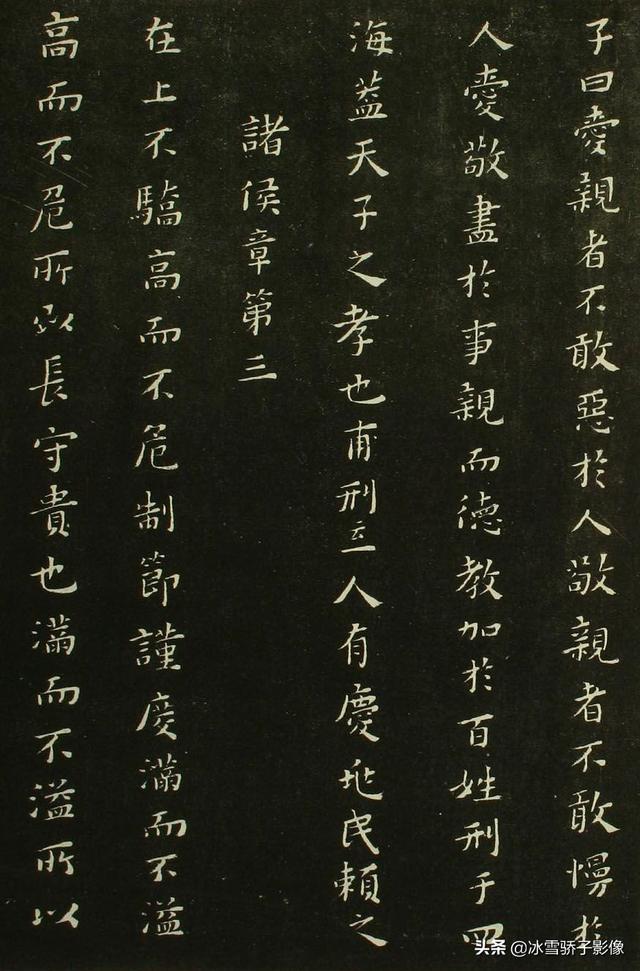 子曰愛親者不敢惡於人敬親者不敢慢於
人愛敬盡於事親而德教加於百姓刑于四
海蓋天子之孝也甫刑云一人有慶兆民賴之
諸侯章第三
在上不驕高而不危制節謹度滿而不溢
高而不危所以長守貴也滿而不溢所以
头条 @冰雪骄子影像